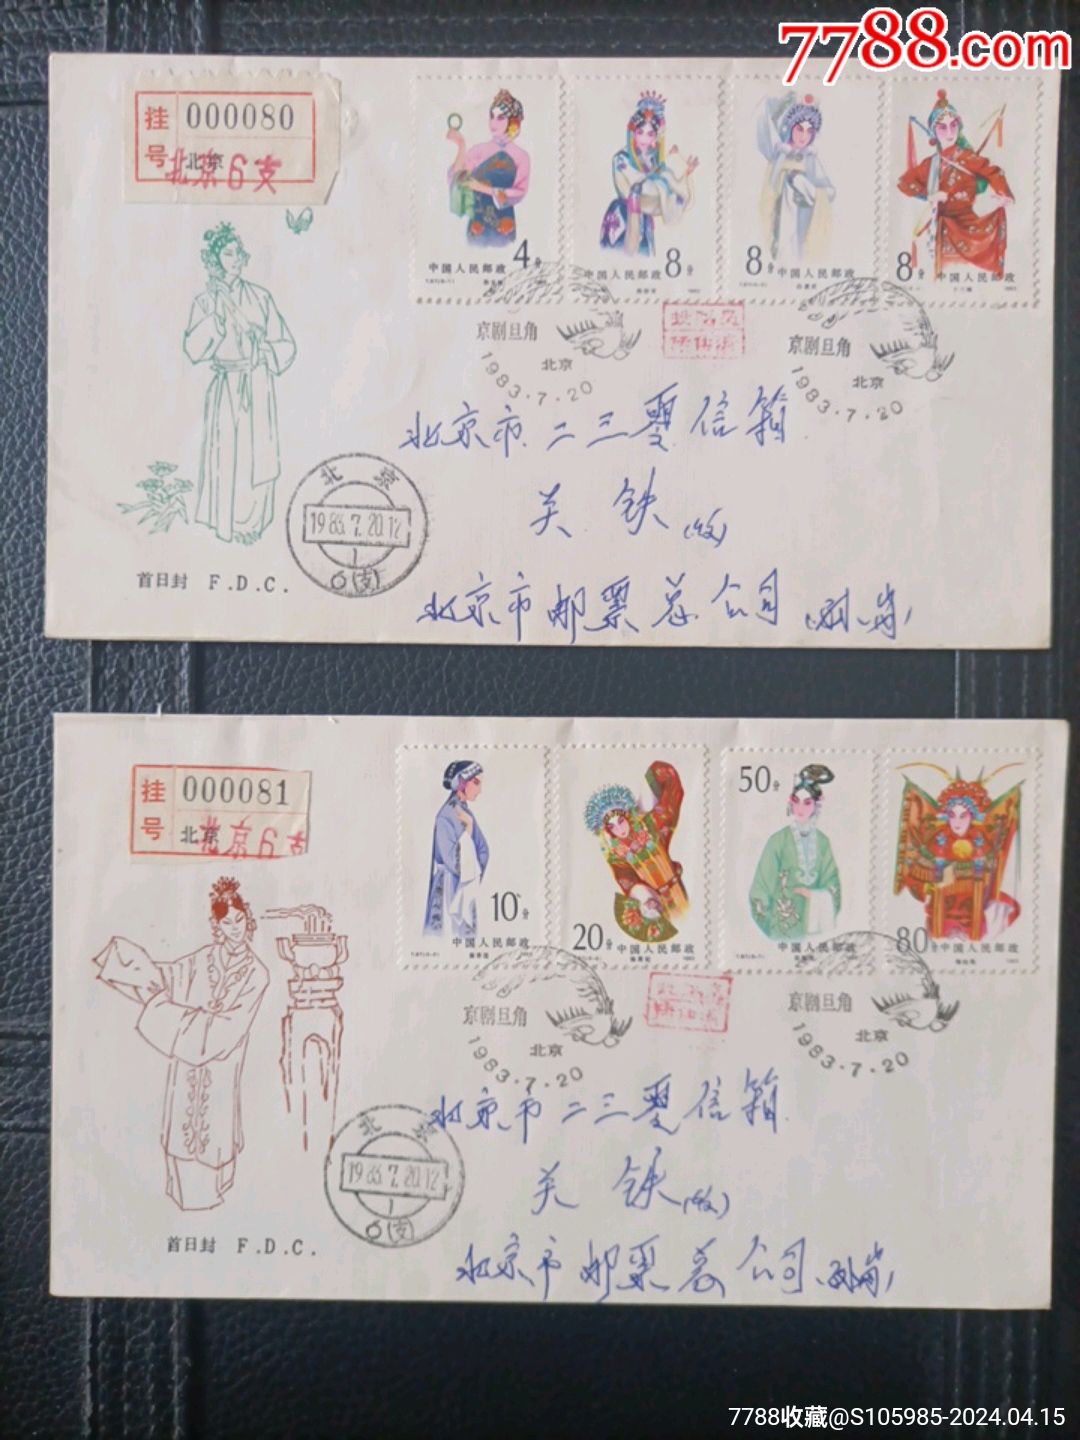 7788.com
挂号
000080
北京
北京6支
4分
中国人民邮政
8分
中国人民邮政
8分
中国人民邮政
8分
中国人民邮政
京剧旦角
北京
1983.7.20
京剧旦角
北京
1983.7.20
北京市二三零信箱
关铁(收)
北京
1983.7.20.12
1
6(支)
首日封 F.D.C.
北京市邮票总公司
挂号
000081
北京
北京6支
10分
中国人民邮政
20分
中国人民邮政
50分
中国人民邮政
80分
中国人民邮政
京剧旦角
北京
1983.7.20
京剧旦角
北京
1983.7.20
北京市二三零信箱
关铁(收)
北京
1983.7.20.12
1
6(支)
首日封 F.D.C.
北京市邮票总公司
7788收藏@S105985-2024.04.15